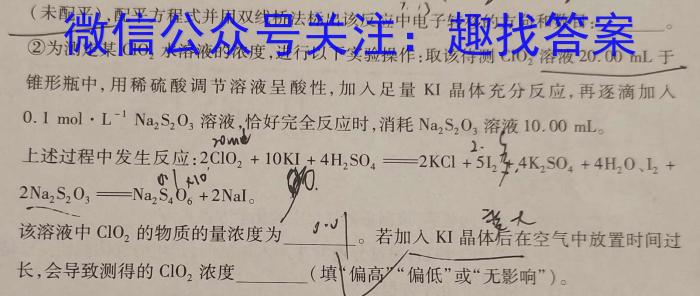 (未配平),配平方程式并用双线桥法标出该反应中电子转移的方向和
微信公众号关注:趣找答案
②为测定某 ClO₂ 水溶液的浓度,进行以下实验操作:取该待测 ClO₂ 溶液 20.00 mL 于
锥形瓶中,用稀硫酸调节溶液呈酸性,加入足量 KI 晶体充分反应,再逐滴加入
0.1 mol·L⁻¹ Na₂S₂O₃ 溶液,恰好完全反应时,消耗 Na₂S₂O₃ 溶液 10.00 mL。
上述过程中发生反应:2ClO₂ + 10KI + 4H₂SO₄ ══ 2KCl + 5I₂ + 4K₂SO₄ + 4H₂O、I₂ +
2Na₂S₂O₃ ══ Na₂S₄O₆ + 2NaI。
该溶液中 ClO₂ 的物质的量浓度为______。若加入 KI 晶体后在空气中放置时间过
长,会导致测得的 ClO₂ 浓度______(填“偏高”“偏低”或“无影响”)。